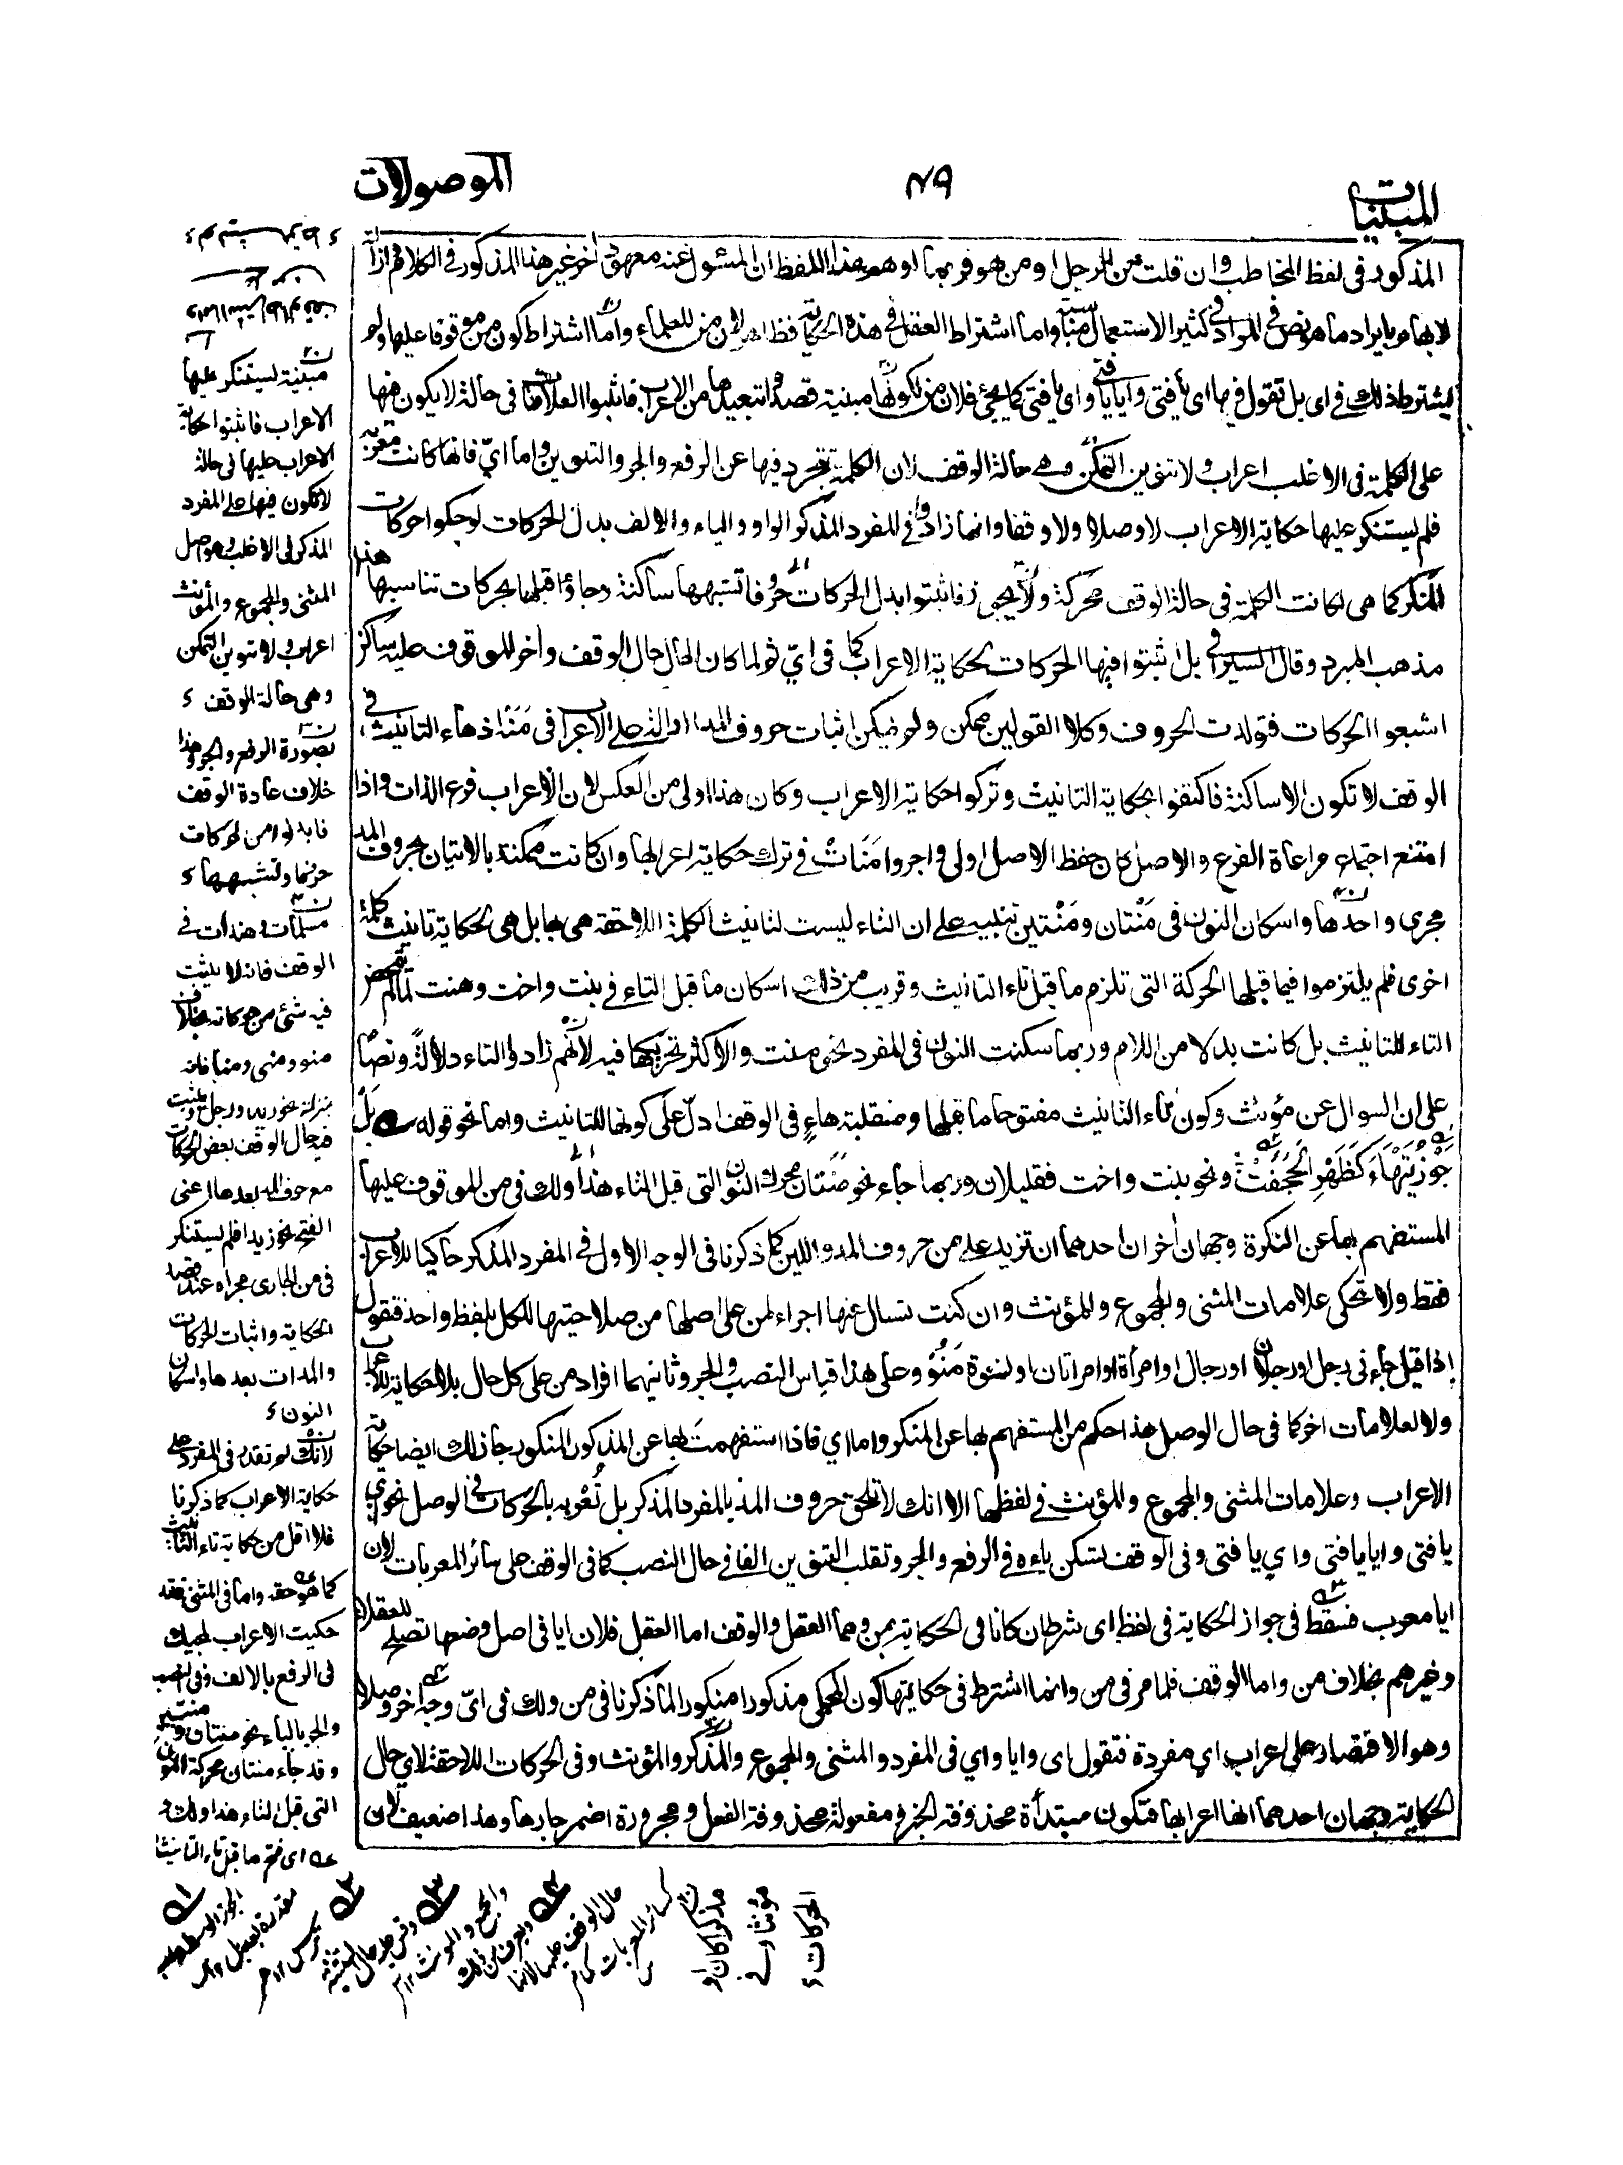 المبنيات
٤٩
الموصولات
المذكور في لفظ المخاطب وان قلت من الرجل او من هو فربما اوهم هذا اللفظ ان المسئول عنه معهود اخر غير هذا المذكور في الكلام ازالة
لابهام بايراد ما هو نص في المراد في كثير الاستعمال منا واما اشتراط العقل في هذه الحكاية فظاهر لان من للعلماء واما اشتراط كون من موقوفا عليها ولم
يشترط ذلك في اى بل تقول فيها اى يا فتى وايا يا فتى واي يا فتى كما يجئ فلان من لكونها مبنية قصدوا تبعيدها من الاعراب فاثبتوا العلامات في حالة لا يكون فيها
على الكلمة فى الاغلب اعراب ولا تنوين التمكن وهي حالة الوقف لان الكلمة تتجرد فيها عن الرفع والجر والتنوين واما اىّ فانها كانت معربة
فلم يستنكر عليها حكاية الاعراب لا وصلا ولا وقفا وانما زادوا في المفرد المذكر الواو والياء والالف بدل الحركات لو حكوا حركات
المنكر كما هى لكانت الكلمة في حالة الوقف محركة ولا يجوز فاثبتوا بدل الحركات حروفا تشبهها ساكنة وجاؤا قبلها بحركات تناسبها هذا
مذهب المبرد وقال السيرافي بل اثبتوا فيها الحركات لحكاية الاعراب كما في ايّ ثم لما كان الحال حال الوقف واخر الموقوف عليه ساكن
اشبعوا الحركات فتولدت الحروف وكلا القولين ممكن ولم يمكن اثبات حروف المد الدالة على الاعراب فى مَنَهْ اذ هاء التانيث في
الوقف لا تكون الا ساكنة فاكتفوا بحكاية التانيث وتركوا حكاية الاعراب وكان هذا اولى من العكس لان الاعراب فرع الذات واذا
امتنع اجتماع مراعاة الفرع والاصل كان حفظ الاصل اولى واجروا مَنَاتْ في ترك حكاية اعرابها وان كانت ممكنة بالاتيان بحروف المد
مجرى واحدها واسكان النون فى مَنْتان ومَنْتين تنبيه على ان التاء ليست لتانيث الكلمة اللاحقة هى بها بل هى لحكاية تانيث كلمة
اخرى فلم يلتزموا فيما قبلها الحركة التى تلزم ما قبل تاء التانيث وقريب من ذلك اسكان ما قبل التاء في بنت واخت وهنت لما لم تتمحض
التاء للتانيث بل كانت بدلا من اللام وربما سكنت النون فى المفرد نحو منت والاكثر تحريكها فيه لانهم زادوا التاء دلالةً ونصّا
على ان السوال عن مؤنث وكون تاء التانيث مفتوحا ما قبلها ومنقلبة هاءٍ فى الوقف ادلّ على كونها للتانيث واما نحو قوله بَلْ
جَوْزِ تَيْهَاءَ كَظَهْرِ الْحَجَفَتْ ونحو بنت واخت فقليلان وربما جاء نحو مَنَتان محرك النون التى قبل التاء هذا ولك فى من الموقوف عليها
المستفهم بها عن النكرة وجهان اخران احدهما ان تزيد على من حروف المد واللين كما ذكرنا فى الوجه الاول فى المفرد المذكر حاكيا للاعراب
فقط ولا تحكى علامات المثنى والمجموع والمؤنث وان كنت تسال عنها اجراء لمن على اصلها من صلاحيتها للكل بلفظ واحد فتقول
اذا قيل جاءنى رجل او رجلان او رجال او امرأة او امراتان او نسوة مَنُوْ وعلى هذا قياس النصب والجر وثانيهما افراد من على كل حال بلا حكاية للاعراب
ولا لعلامات اخر كما فى حال الوصل هذا حكم من المستفهم بها عن المنكر واما اي فاذا استفهمت بها عن المذكور المنكور جاز لك ايضا حكاية
الاعراب وعلامات المثنى والمجموع والمؤنث في لفظها الا انك لا تلحق حروف المد بالمفرد المذكر بل تُعْربه بالحركات في الوصل نحو اي
يا فتى وايا يا فتى واي يا فتى وفى الوقف تسكن ياءه في الرفع والجر وتقلب التنوين الفا في حال النصب كما فى الوقف على سائر المعربات لان
ايا معرب فسقط فى جواز الحكاية فى لفظ اى شرطان كانا فى الحكاية بمن وهما العقل والوقف اما العقل فلان ايا فى اصل وضعها تصلح للعقلاء
وغيرهم بخلاف من واما الوقف فلما مر فى من وانما اشترط فى حكايتها كون المحكى مذكورا منكورا لما ذكرنا فى من ولك فى ايّ وجه اخر وصلا
وهو الاقتصار على اعراب اي مفردة فتقول اى وايا واي فى المفرد والمثنى والمجموع والمذكر والمؤنث وفى الحركات اللاحقة لاي حال
الحكاية وجهان احدهما انها اعرابها فتكون مبتدأة محذوفة الخبر ومفعولة محذوفة الفعل ومجرورة اضمر جارها وهذا ضعيف لان
مبنية ليستنكر عليها
الاعراب فاثبتوا حكاية
الاعراب عليها فى حالة
لا تكون فيها على المفرد
المذكر فى الاغلب وهو اصل
المثنى والمجموع والمؤنث
اعراب ولا تنوين التمكن
وهى حالة الوقف
بصورة الرفع والجر وهذا
خلاف عادة الوقف
فابدلوا من الحركات
حروفا وتشبهها
مسلمات وهندات فى
الوقف فانه لا يثبت
فيه شئ من حركاته بخلاف
منو ومنى ومنا فانه
بمنزلة نحو زيد ورجل ويثبت
فى حال الوقف بعض الحركات
مع حرف المد بعدها اعنى
الفتح نحو زيدا فلم يستنكر
فى من الجارى مجراه عند قصد
الحكاية واثبات الحركات
والمدات بعدها واسكان
النون
لانك لم تقدر فى المفرد على
حكاية الاعراب كما ذكرنا
فلا اقل من حكاية تاء التانيث
كما هو حقه واما فى المثنى فقد
حكيت الاعراب لمجيئه
فى الرفع بالالف وفى النصب
والجر بالياء نحو منتان ومنتين
وقد جاء منتان بحركة النون
التى قبل التاء هذا ولك
اى فتح ما قبل تاء التانيث
الجوز الوسط
والجمع والمونث
كسائر المعربات
مذكرا كان او
مؤنثا
الحركات